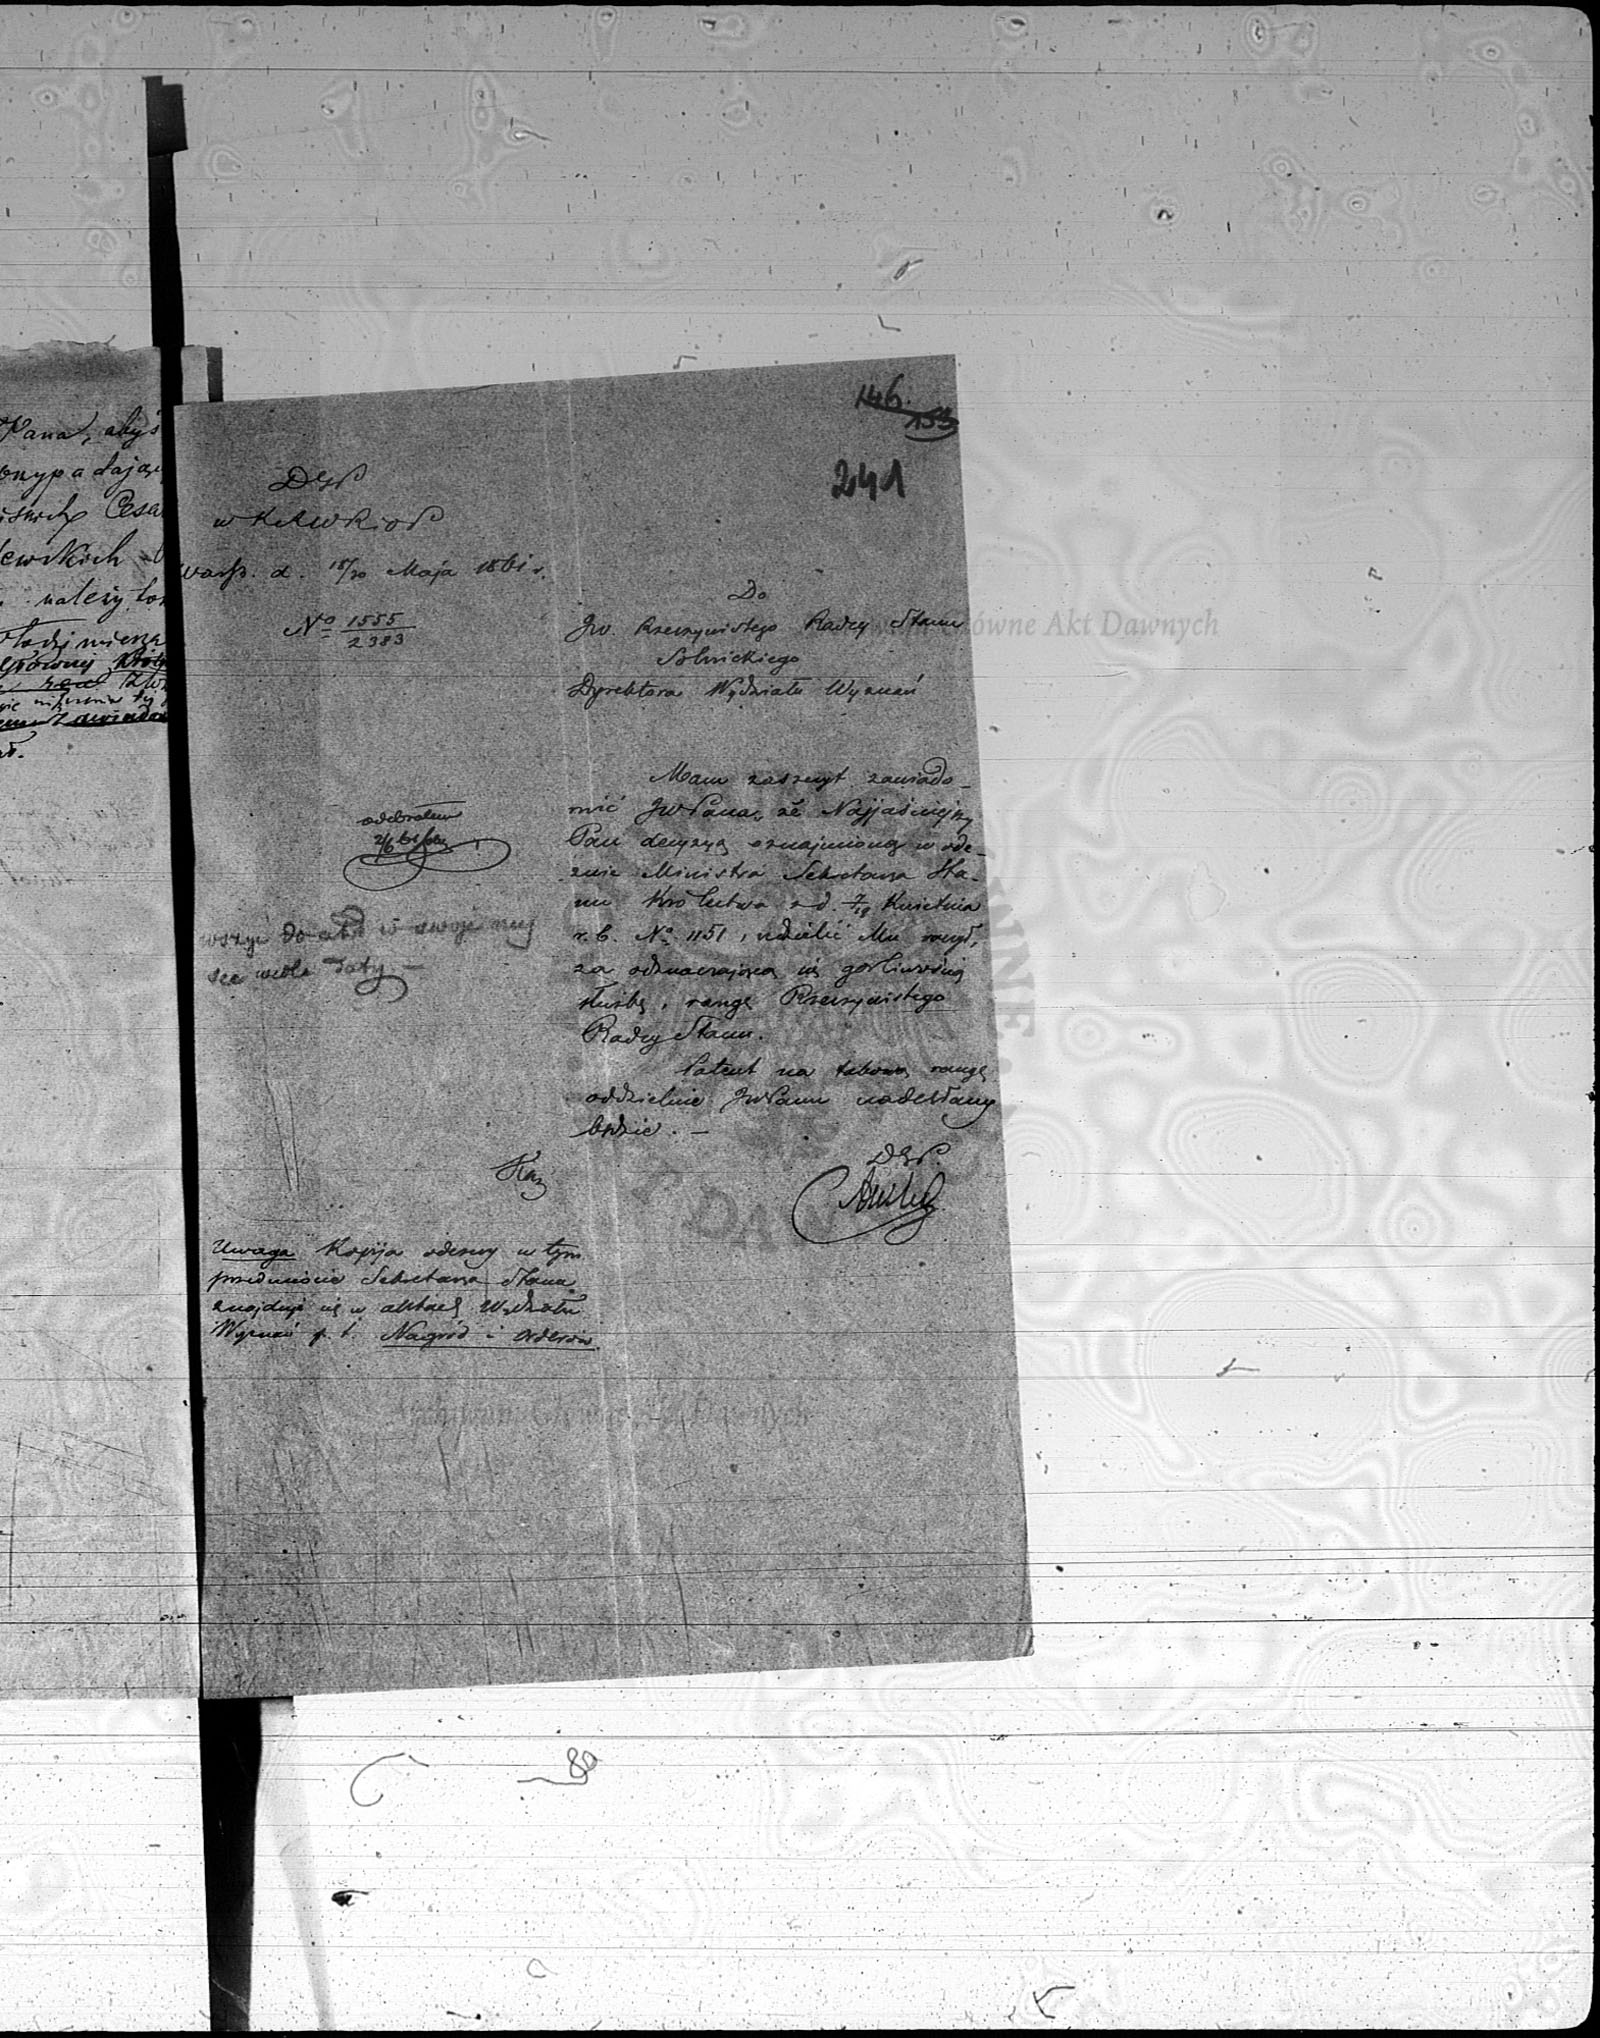 Pana, abyś
należy
146.
153
241
DGP
w KRWRiOP
Warsz. d. 18/30 Maja 1861 r.
No 1555
2383
Do
JW. Rzeczywistego Radcy Stanu
Dyrektora Wydziału Wyznań
Mam zaszczyt zawiado-
mić JWPana, że Najjaśniejszy
Pan decyzyą oznajmioną w ode-
zwie Ministra Sekretarza Sta-
nu Królestwa z d. 7/19 Kwietnia
r. b. No 1151, udzielić Mu raczył,
za odznaczającą się gorliwością
służbę, rangę Rzeczywistego
Radcy Stanu.
Patent na takową rangę
oddzielnie JWPanu nadesłany
będzie. —
DGP.
odebrałem
2/6
wszyć do akt w swoje miej
sce wedle daty —
Uwaga Kopija odezwy w tym
przedmiocie Sekretarza Stanu
znajduje się w aktach Wydziału
Wyznań p. t. Nagród i Orderów.
Główne Akt Dawnych
Archiwum Główne Akt Dawnych